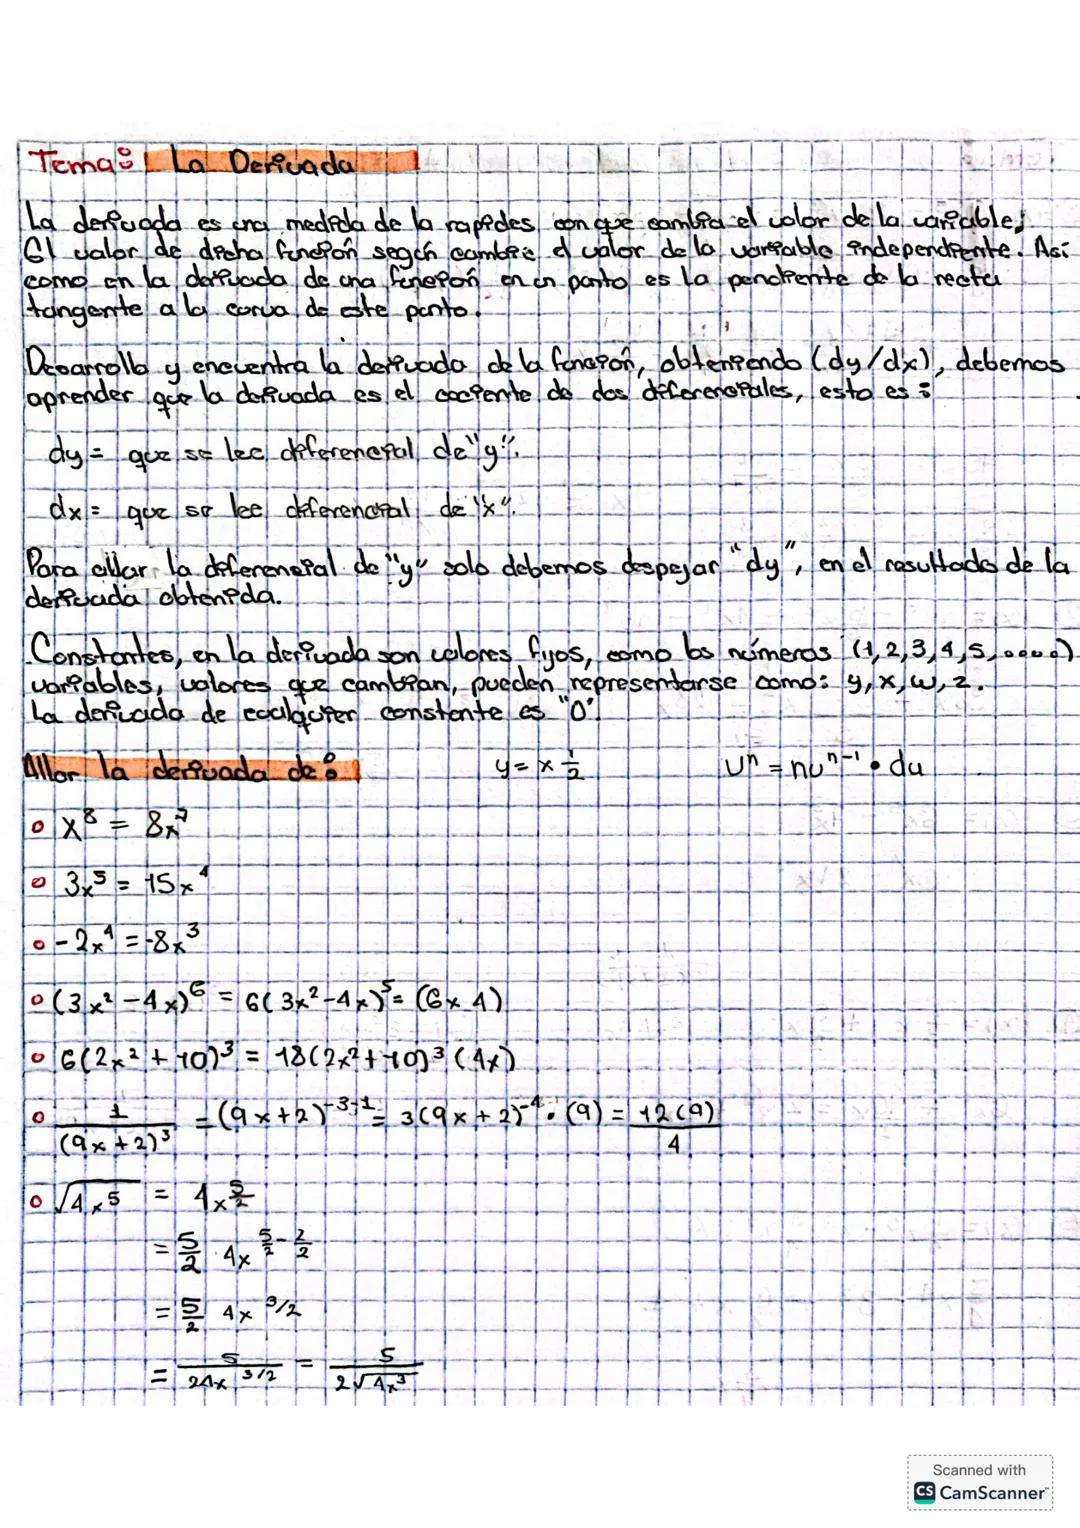 Tema: La Derivada
La derivada es una medida de la rapides con que cambia el valor de la variable,
El valor de dicha función según cambie el valor de la variable independiente. Así
como en la derivada de una función en un punto es la pendiente de la recta
tangente a la curva de este punto.
Desarrolla y encuentra la derivada de la función, obteniendo (dy/dx), debemos
aprender que la derivada es el cociente de dos diferenciales, esto es:
dy = que se lee diferencial de "y".
dx = que se lee diferencial de "x".
Para allar la diferencial de "y" solo debemos despejar "dy", en el resultado de la
derivada obtenida.
Constantes, en la derivada son valores fijos, como los números (1,2,3,4,5,.....)
variables, valores que cambian, pueden representarse como: y,x,w,z.
La derivada de cualquier constante es "0".
Allar la derivada de: y = x 1/2 Uⁿ = nuⁿ⁻¹ • du
x⁸ = 8x⁷
3x⁵ = 15x⁴
-2x⁴ = -8x³
(3x² - 4x)⁶ = 6(3x² - 4x)⁵ = (6x 4)
6(2x² + 10)³ = 18(2x² + 10)³ (4x)
1/(9x+2)³ = (9x+2)⁻³⁻¹ = 3(9x+2)⁻⁴ • (9) = 12(9)/4
√4x⁵ = 4x 5/2
= 5/2 4x 5/2 - 2/2
= 5/2 4x 3/2
= 5/24x 3/2 = 5/2√4x³
Scanned with
CS CamScanner